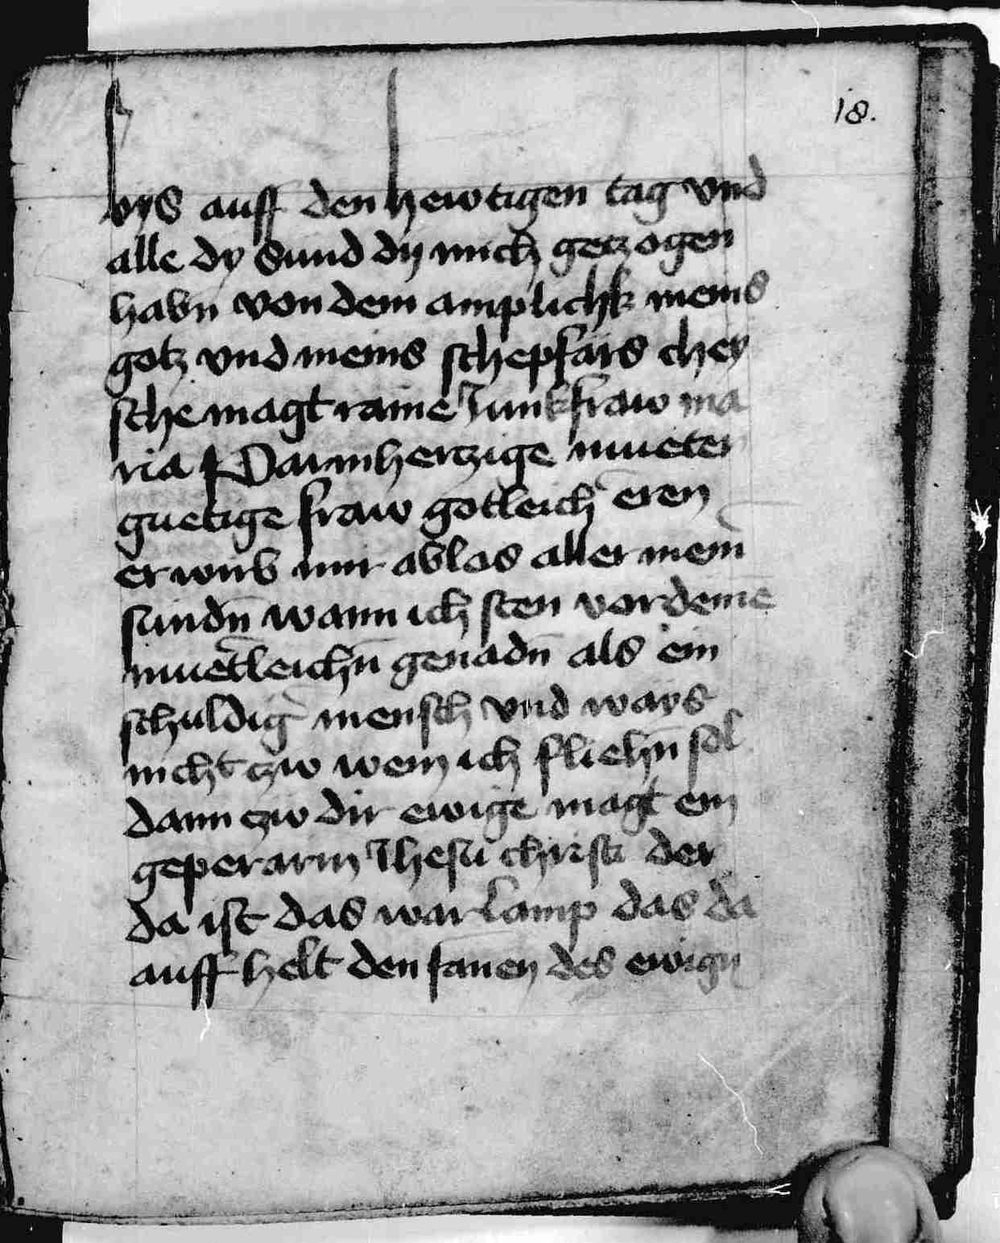 18.
bys auff den hewtigen tag vnd
alle dy sund dy mich getzogen
habn von dem amplichk meins
gotz vnd meins schepfars chey
sche magt raine Junkfraw ma
ria Parmhertzige mueter
guetige fraw gotleich eren
erwirb mir ablas aller mein̄
sundn̄ wann ich sten vor deinē
muetleichn̄ genadn̄ als ein
schuldig mensch vnd ways
nicht czw wem ich fliehn̄ sol
dann czw dir ewige magt ein
geperarin Jhesu christi der
da ist das war lamp das da
auff helt den fanen des ewign